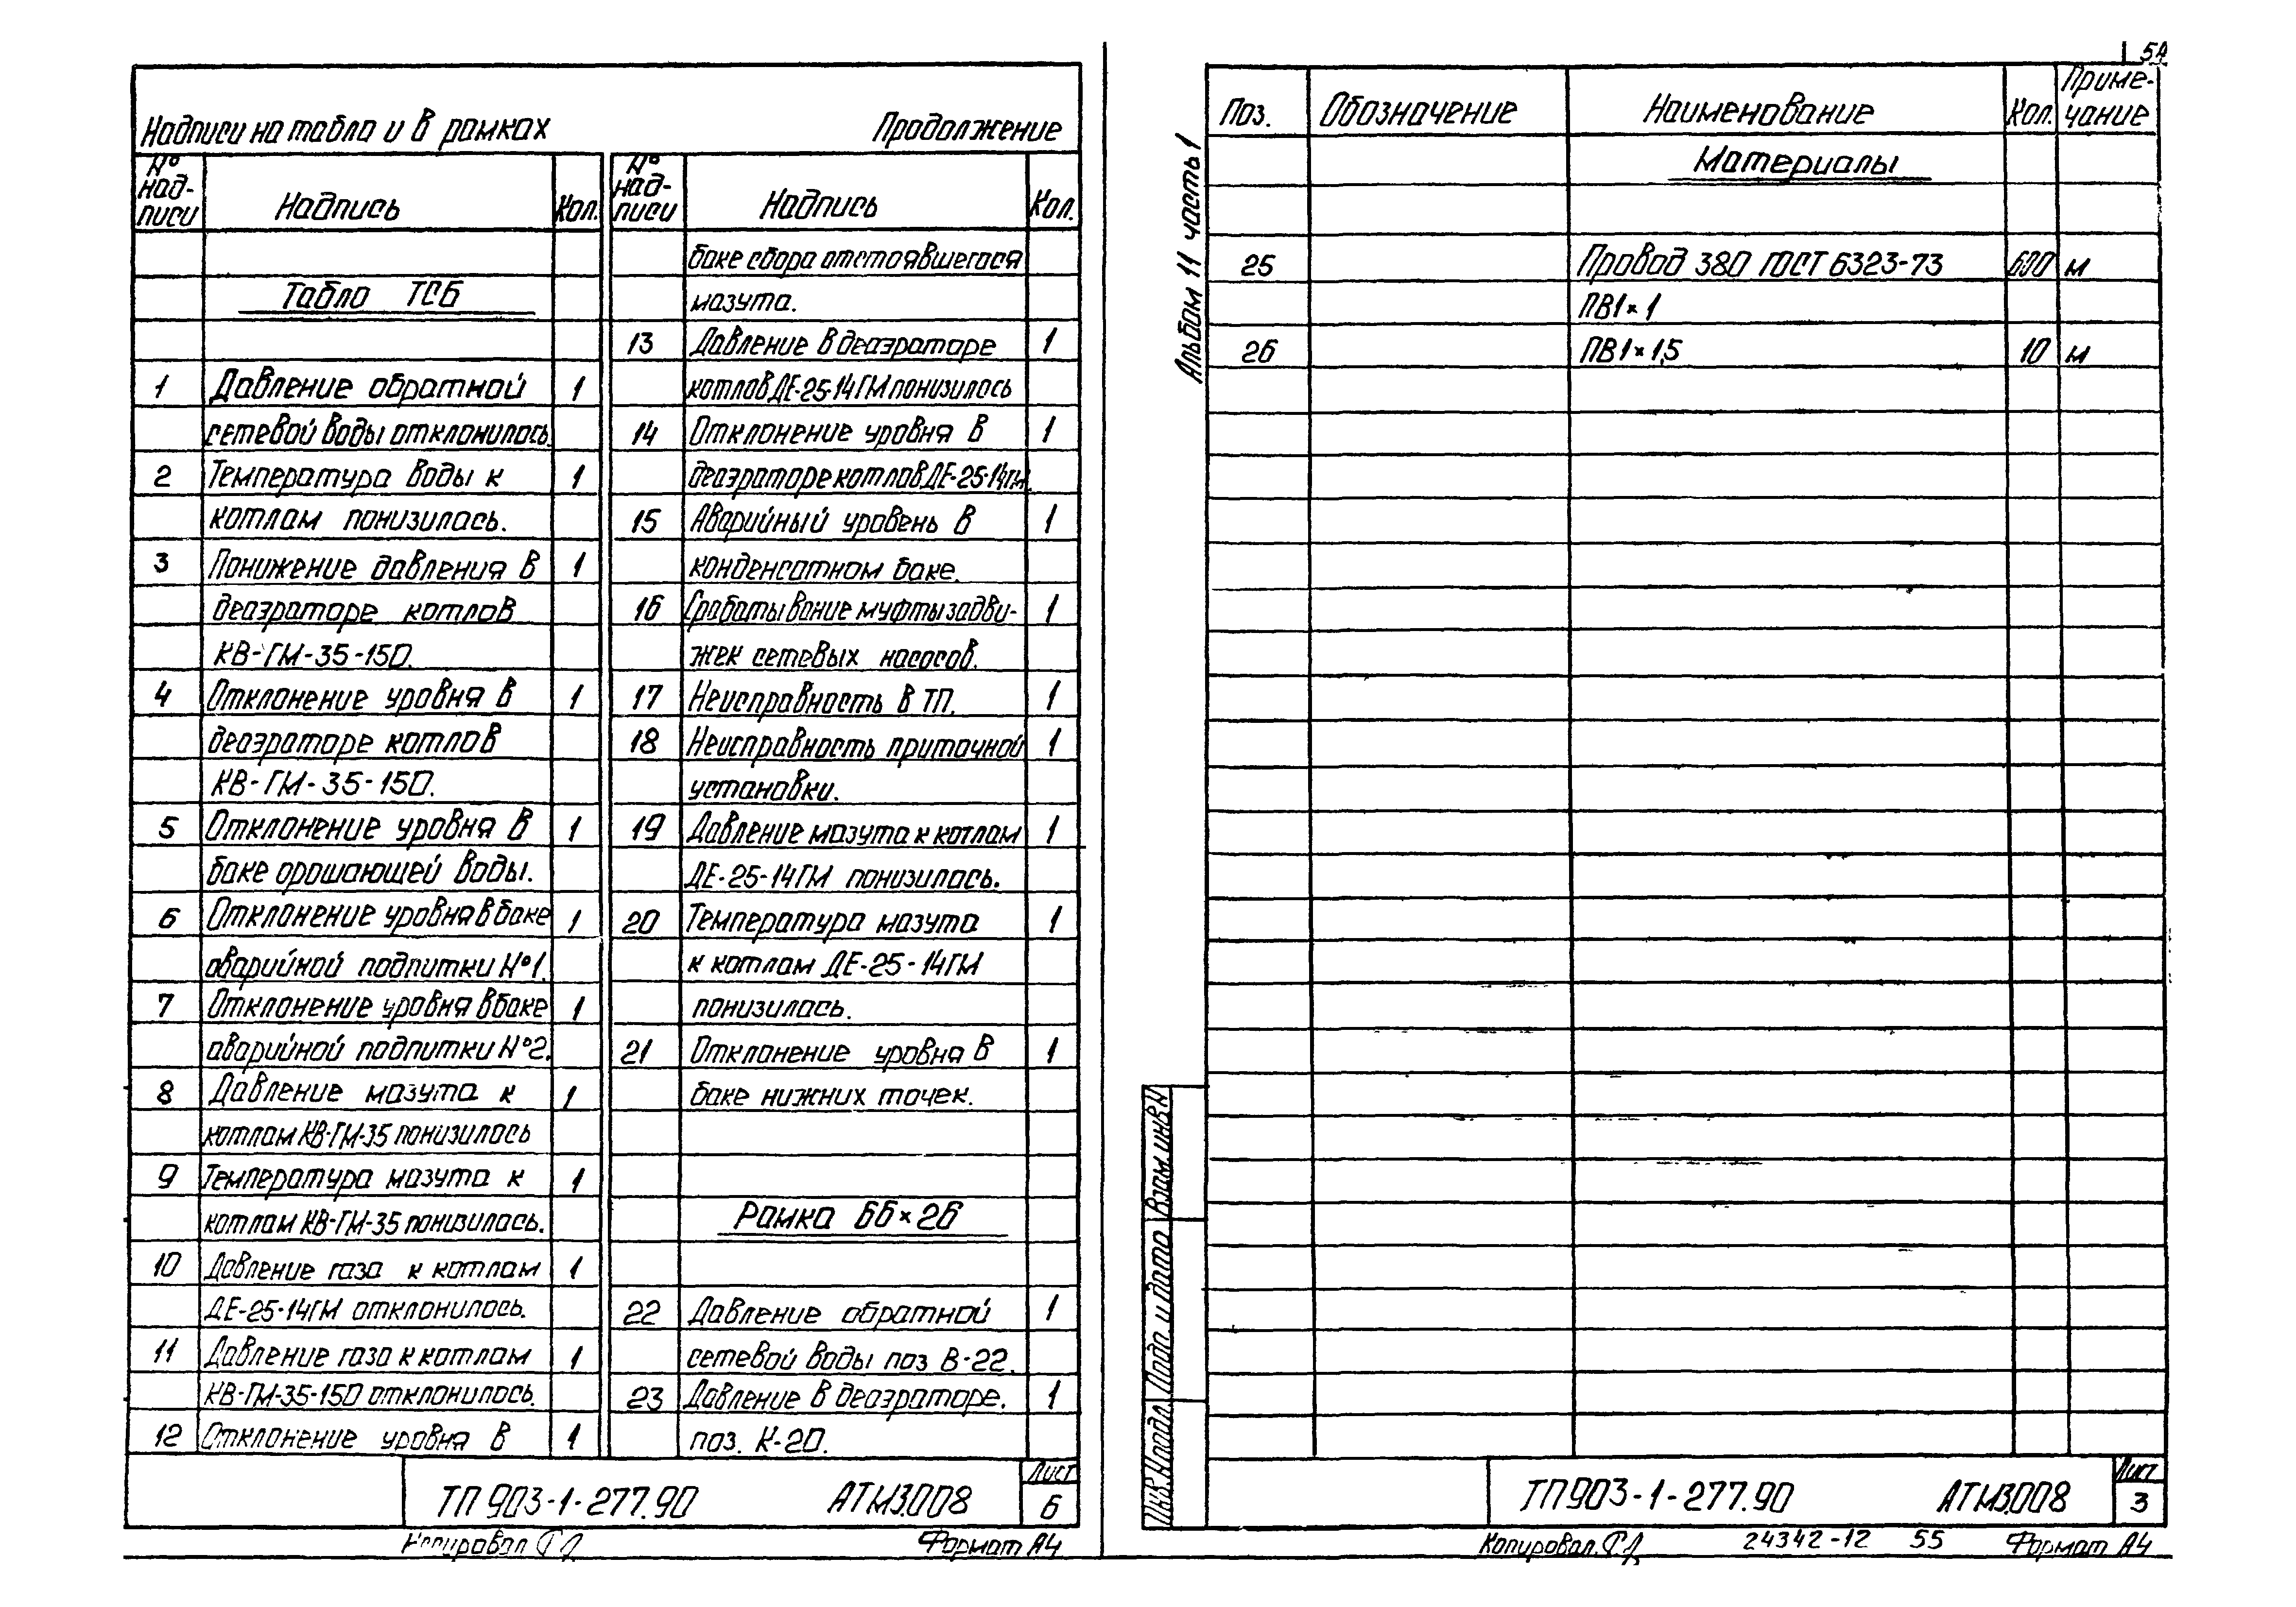 Надписи на табло и в рамках Продолжение
№ надписи Надпись Кол.
Табло ТСБ
1 Давление обратной 1
сетевой воды отклонилось.
2 Температура воды к 1
котлам понизилась.
3 Понижение давления в 1
деаэраторе котлов
КВ-ГМ-35-150.
4 Отклонение уровня в 1
деаэраторе котлов
КВ-ГМ-35-150.
5 Отклонение уровня в 1
баке орошающей воды.
6 Отклонение уровня в баке 1
аварийной подпитки №1.
7 Отклонение уровня в баке 1
аварийной подпитки №2.
8 Давление мазута к 1
котлам КВ-ГМ-35 понизилось
9 Температура мазута к 1
котлам КВ-ГМ-35 понизилась.
10 Давление газа к котлам 1
ДЕ-25-14ГМ отклонилось.
11 Давление газа к котлам 1
КВ-ГМ-35-150 отклонилось.
12 Отклонение уровня в 1
№ надписи Надпись Кол.
баке сбора отстоявшегося
мазута.
13 Давление в деаэраторе 1
котлов ДЕ-25-14ГМ понизилось
14 Отклонение уровня в 1
деаэраторе котлов ДЕ-25-14ГМ.
15 Аварийный уровень в 1
конденсатном баке.
16 Срабатывание муфты задви- 1
жек сетевых насосов.
17 Неисправность в ТП. 1
18 Неисправность приточной 1
установки.
19 Давление мазута к котлам 1
ДЕ-25-14ГМ понизилось.
20 Температура мазута 1
к котлам ДЕ-25-14ГМ
понизилась.
21 Отклонение уровня в 1
баке нижних точек.
Рамка 66×26
22 Давление обратной 1
сетевой воды поз В-22.
23 Давление в деаэраторе. 1
поз. К-20.
ТП 903-1-277.90 АТМ3.008 Лист 6
Копировал Формат А4
Альбом 11 часть 1
Поз. Обозначение Наименование Кол. Приме-
чание
Материалы
25 Провод 380 ГОСТ 6323-73 600 м
ПВ1×1
26 ПВ1×1,5 10 м
Взам. инв. №
Подп. и дата
Инв. № подл.
ТП 903-1-277.90 АТМ3.008 Лист 3
Копировал. 24342-12 55 Формат А4